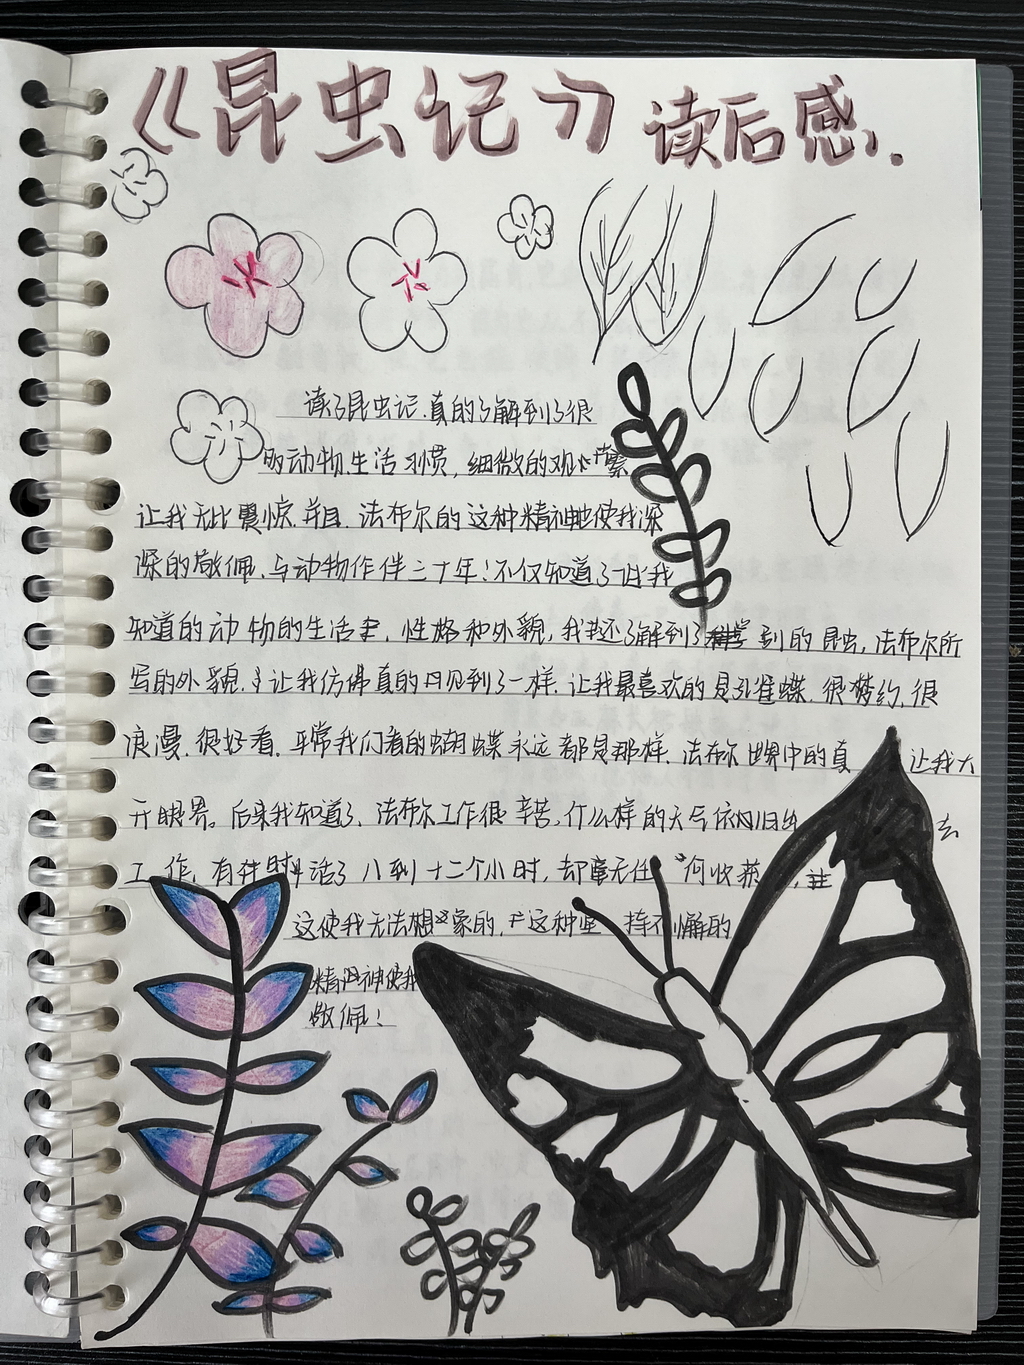 《昆虫记》读后感.
读了昆虫记.真的了解到了很
多动物.生活习惯,细微的观察
让我无比震惊.并且.法布尔的这种精神使我深
深的敬佩.与动物作伴三十年!不仅知道了让我
知道的动物的生活,性格和外貌,我还了解到了到的昆虫,法布尔所
写的外貌.让我仿佛真的见到了一样.让我最喜欢的是孔雀蝶.很梦幻.很
浪漫.很好看.平常我们看的蝴蝶永远都是那样.法布尔世界中的真让我大
开眼界。后来我知道了,法布尔工作很辛苦,什么样的天气依旧去
工作,有时活了八到十二个小时,却毫无任何收获,
这使我无法想象的,这种坚持不懈的
精神使我
敬佩!